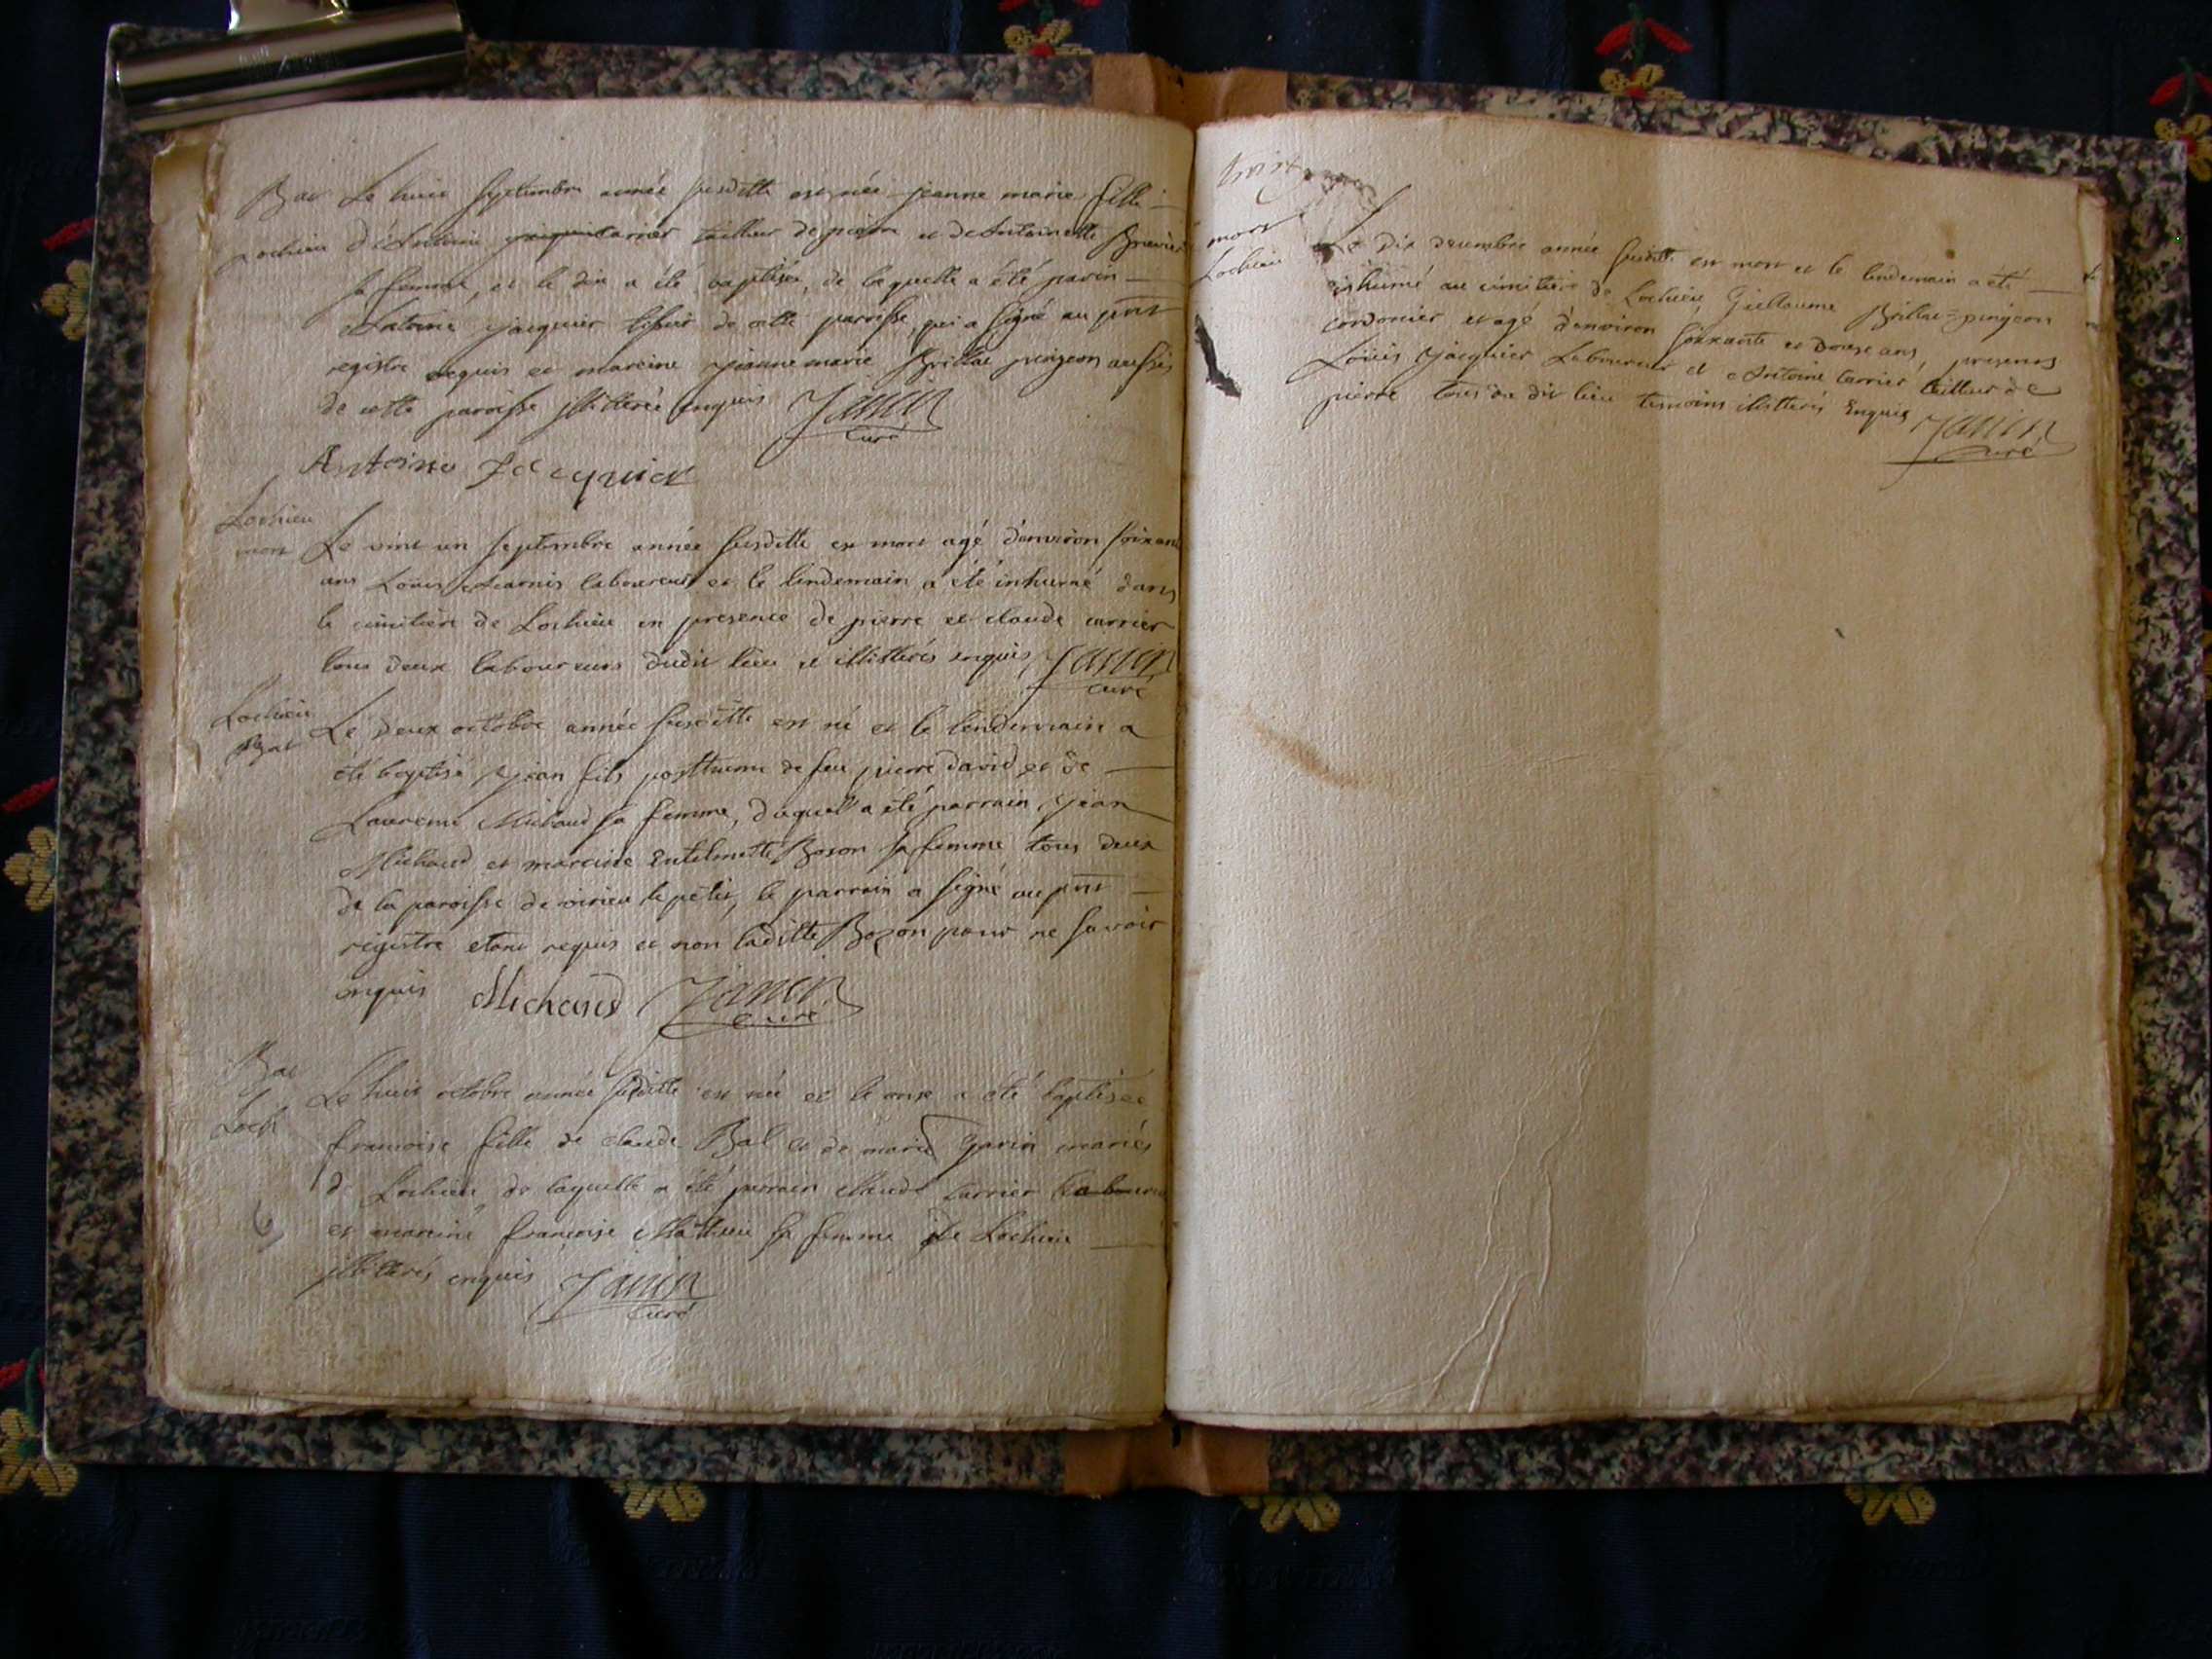 Bat Le huit septembre année susditte est née jeanne marie fille
Lochieu d'Antoine carrier tailleur de pierre et de Antoinette
sa femme, et le dix a été baptisée, de laquelle a été parin
Antoine jacquier de cette paroisse, qui a signé au pnt
registre requis et mareine jeanne marie Brillat pingeon aussi
de cette paroisse illitterée enquis Janin
curé
Antoine Jacquier
Lochieu
mort Le vint un septembre année susditte est mort agé d'environ soixante
ans Louis laboureur et le lendemain a été inhumé dans
le cimitière de Lochieu en presence de pierre et claude carrier
tous deux laboureurs dudit lieu et illitterés enquis Janin
curé
Lochieu
Bat Le deux octobre année susditte est né et le lendemain a
été baptisé jean fils posthume de feu pierre david et de
Laurence Michaud sa femme, duquel a été parrain jean
Michaud et mareine Boson sa femme tous deux
de la paroisse de virieu le petit, le parrain a signé au pnt
registre etant requis et non laditte Bozon pour ne savoir
enquis Michaud Janin
curé
Bat
Loch Le huit octobre année susditte est née et le onze a été baptisée
francoise fille de claude Bal et de marie Janin mariés
de Lochieu, de laquelle a été parrain claude carrier
et mareine francoise Mathieu sa femme de Lochieu
illitterés enquis Janin
curé
mort
Lochieu Le dix decembre année susditte est mort et le lendemain a été
inhumé au cimitière de Lochieu Guillaume Brillat=pingeon
cordonier et agé d'environ soixante et douze ans, presents
Louis jacquier Laboureur et Antoine carrier tailleur de
pierre tous du dit lieu temoins illitterés Enquis Janin
curé